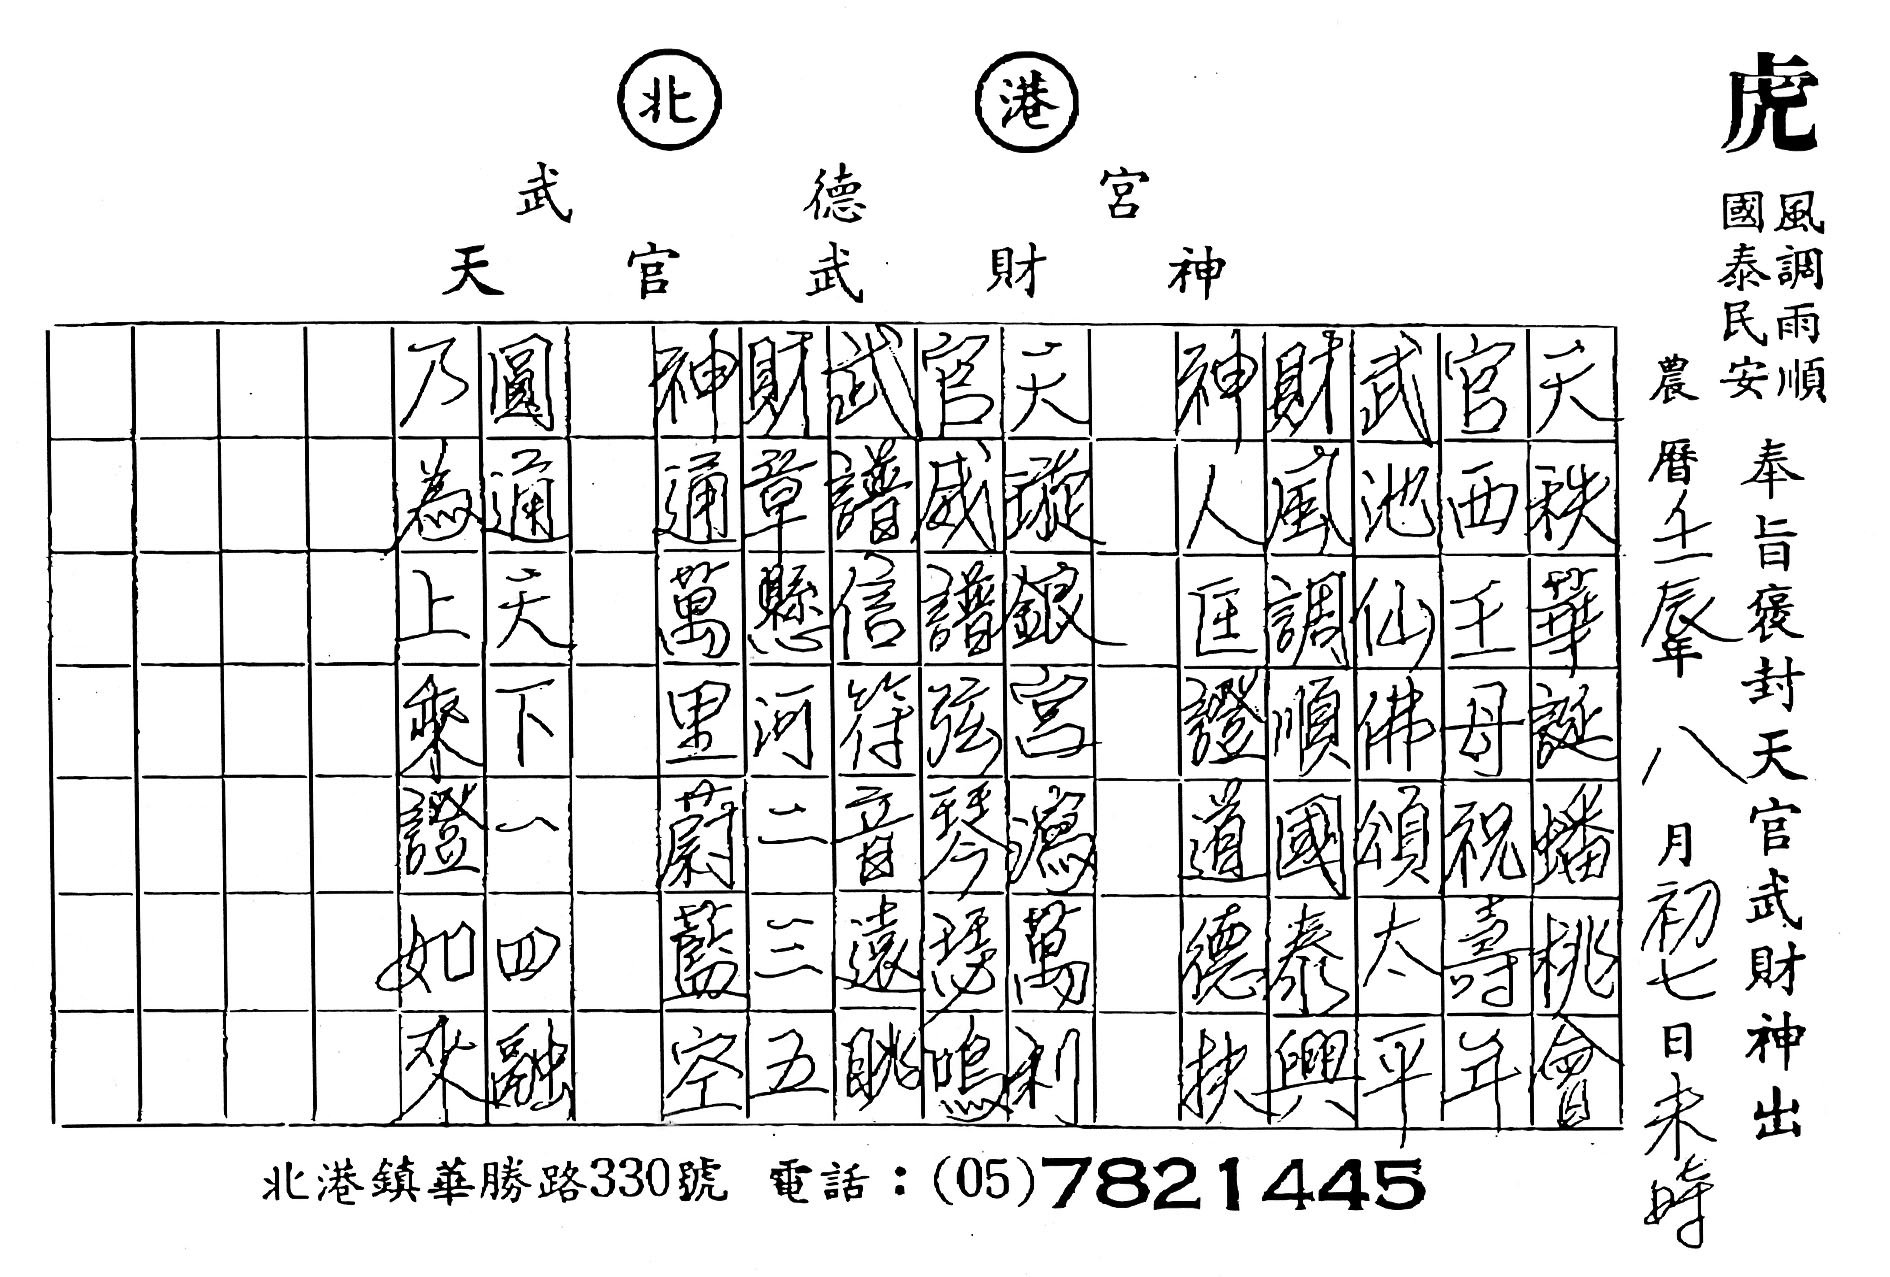 北港
武德宮
天官武財神
虎
風調雨順
國泰民安
奉旨褒封天官武財神出
農曆壬辰年八月初七日未時
天秩華誕蟠桃會
官西王母祝壽年
武池仙佛頌太平
財風調順國泰興
神人匡證道德扶
天璇銀宮為萬利
官威譜弦琴瑟鳴
武譜信符音遠眺
財章懸河二三五
神通萬里蔚藍空
圓通天下一四融
乃為上乘證如來
北港鎮華勝路330號 電話：(05)7821445